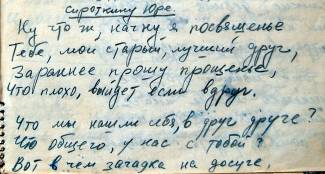 Сироткину Юре.
Ну что ж, начну я посвященье
Тебе, мой старый, лучший друг,
Заранее прошу прощенье,
Что плохо, выйдет если вдруг.
Что мы нашли себя, в друг друге?
Что общего, у нас с тобой?
Вот в чем загадка на досуге,